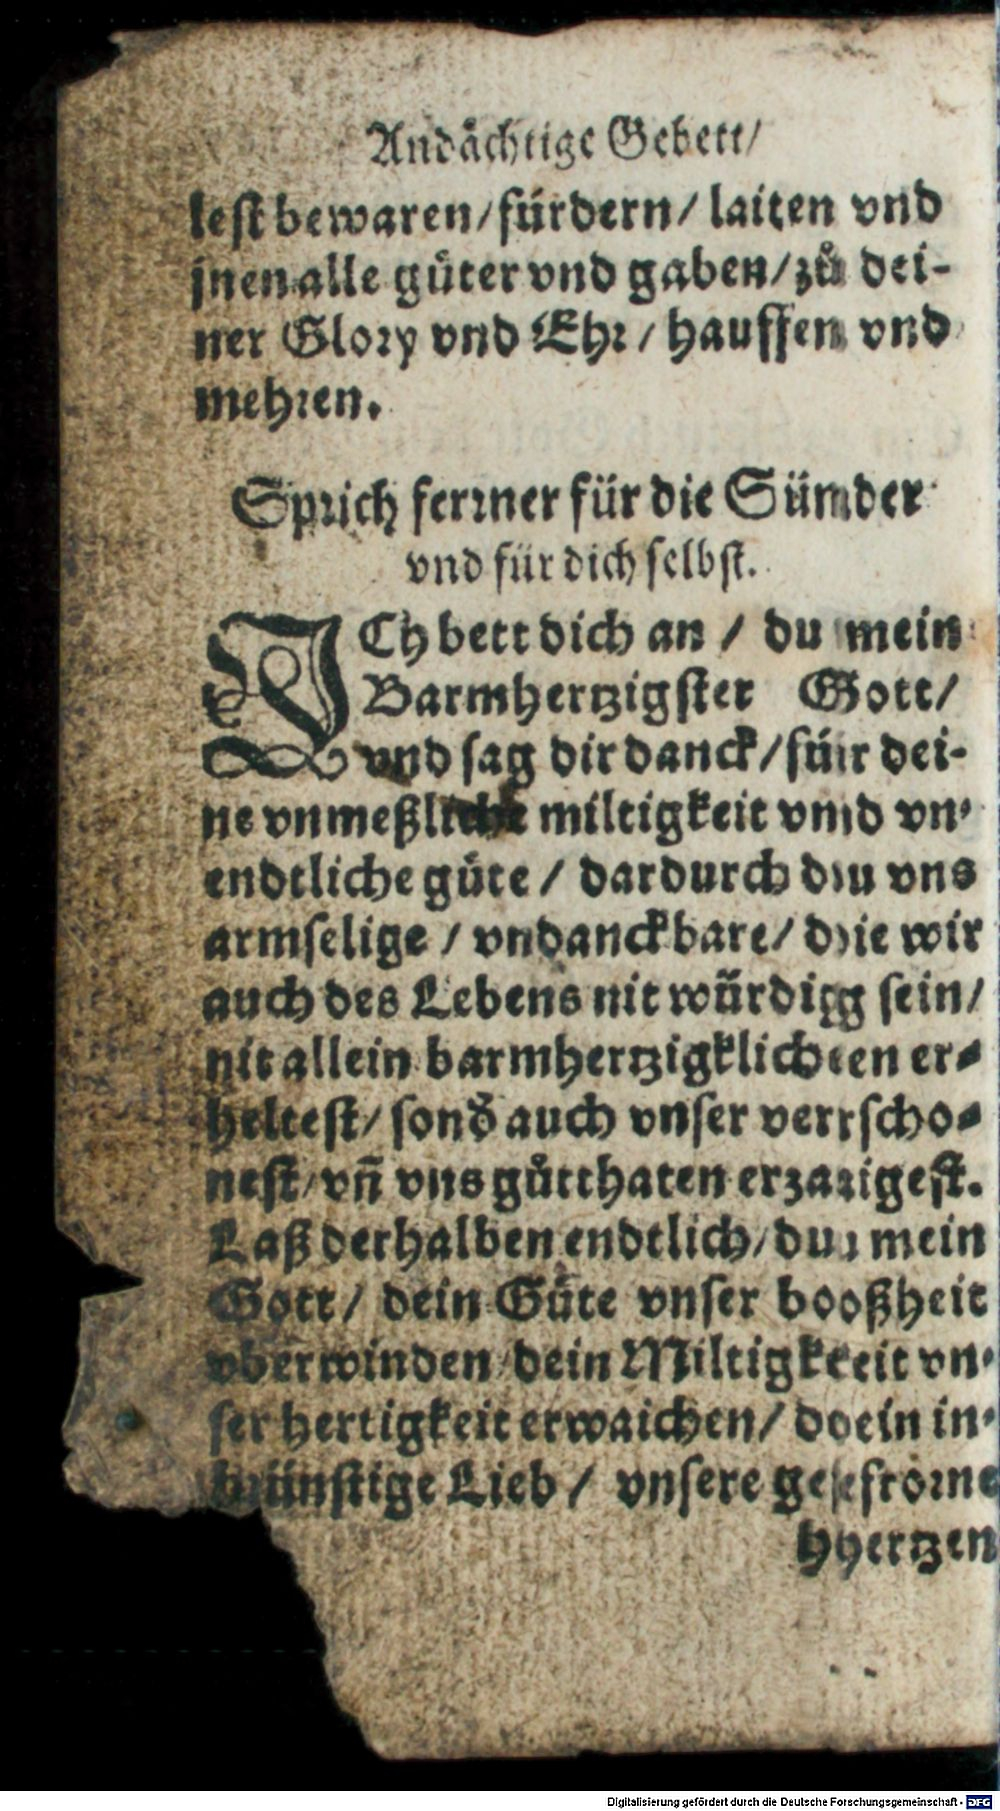 Andaͤchtige Gebett/
leſt bewaren/fuͤrdern/ laiten vnd
jnen alle guͤter vnd gaben/zuͦ dei-
ner Glory vnd Ehr/ hauffen vnd
mehren.
Sprich ferrner für die Sünder
vnd für dich ſelbſt.
ICh bett dich an / du mein
Barmhertzigſter Gott/
vnd ſag dir danck/für dei-
ne vnmeßliche miltigkeit vnd vn-
endtliche guͤte / dardurch du vns
armſelige / vndanckbare/ die wir
auch des Lebens nit wuͤrdig ſein/
nit allein barmhertzigklichen er-
helteſt/ ſond̃ auch vnſer verſcho-
neſt/vñ vns guͦtthaten erzaigeſt.
Laß derhalben endtlich/du mein
Gott/ dein Guͤte vnſer booßheit
vberwinden/dein Miltigkeit vn-
ſer hertigkeit erwaichen/ dein in-
brünſtige Lieb / vnſere gefrorne
hertzen
Digitalisierung gefördert durch die Deutsche Forschungsgemeinschaft - DFG